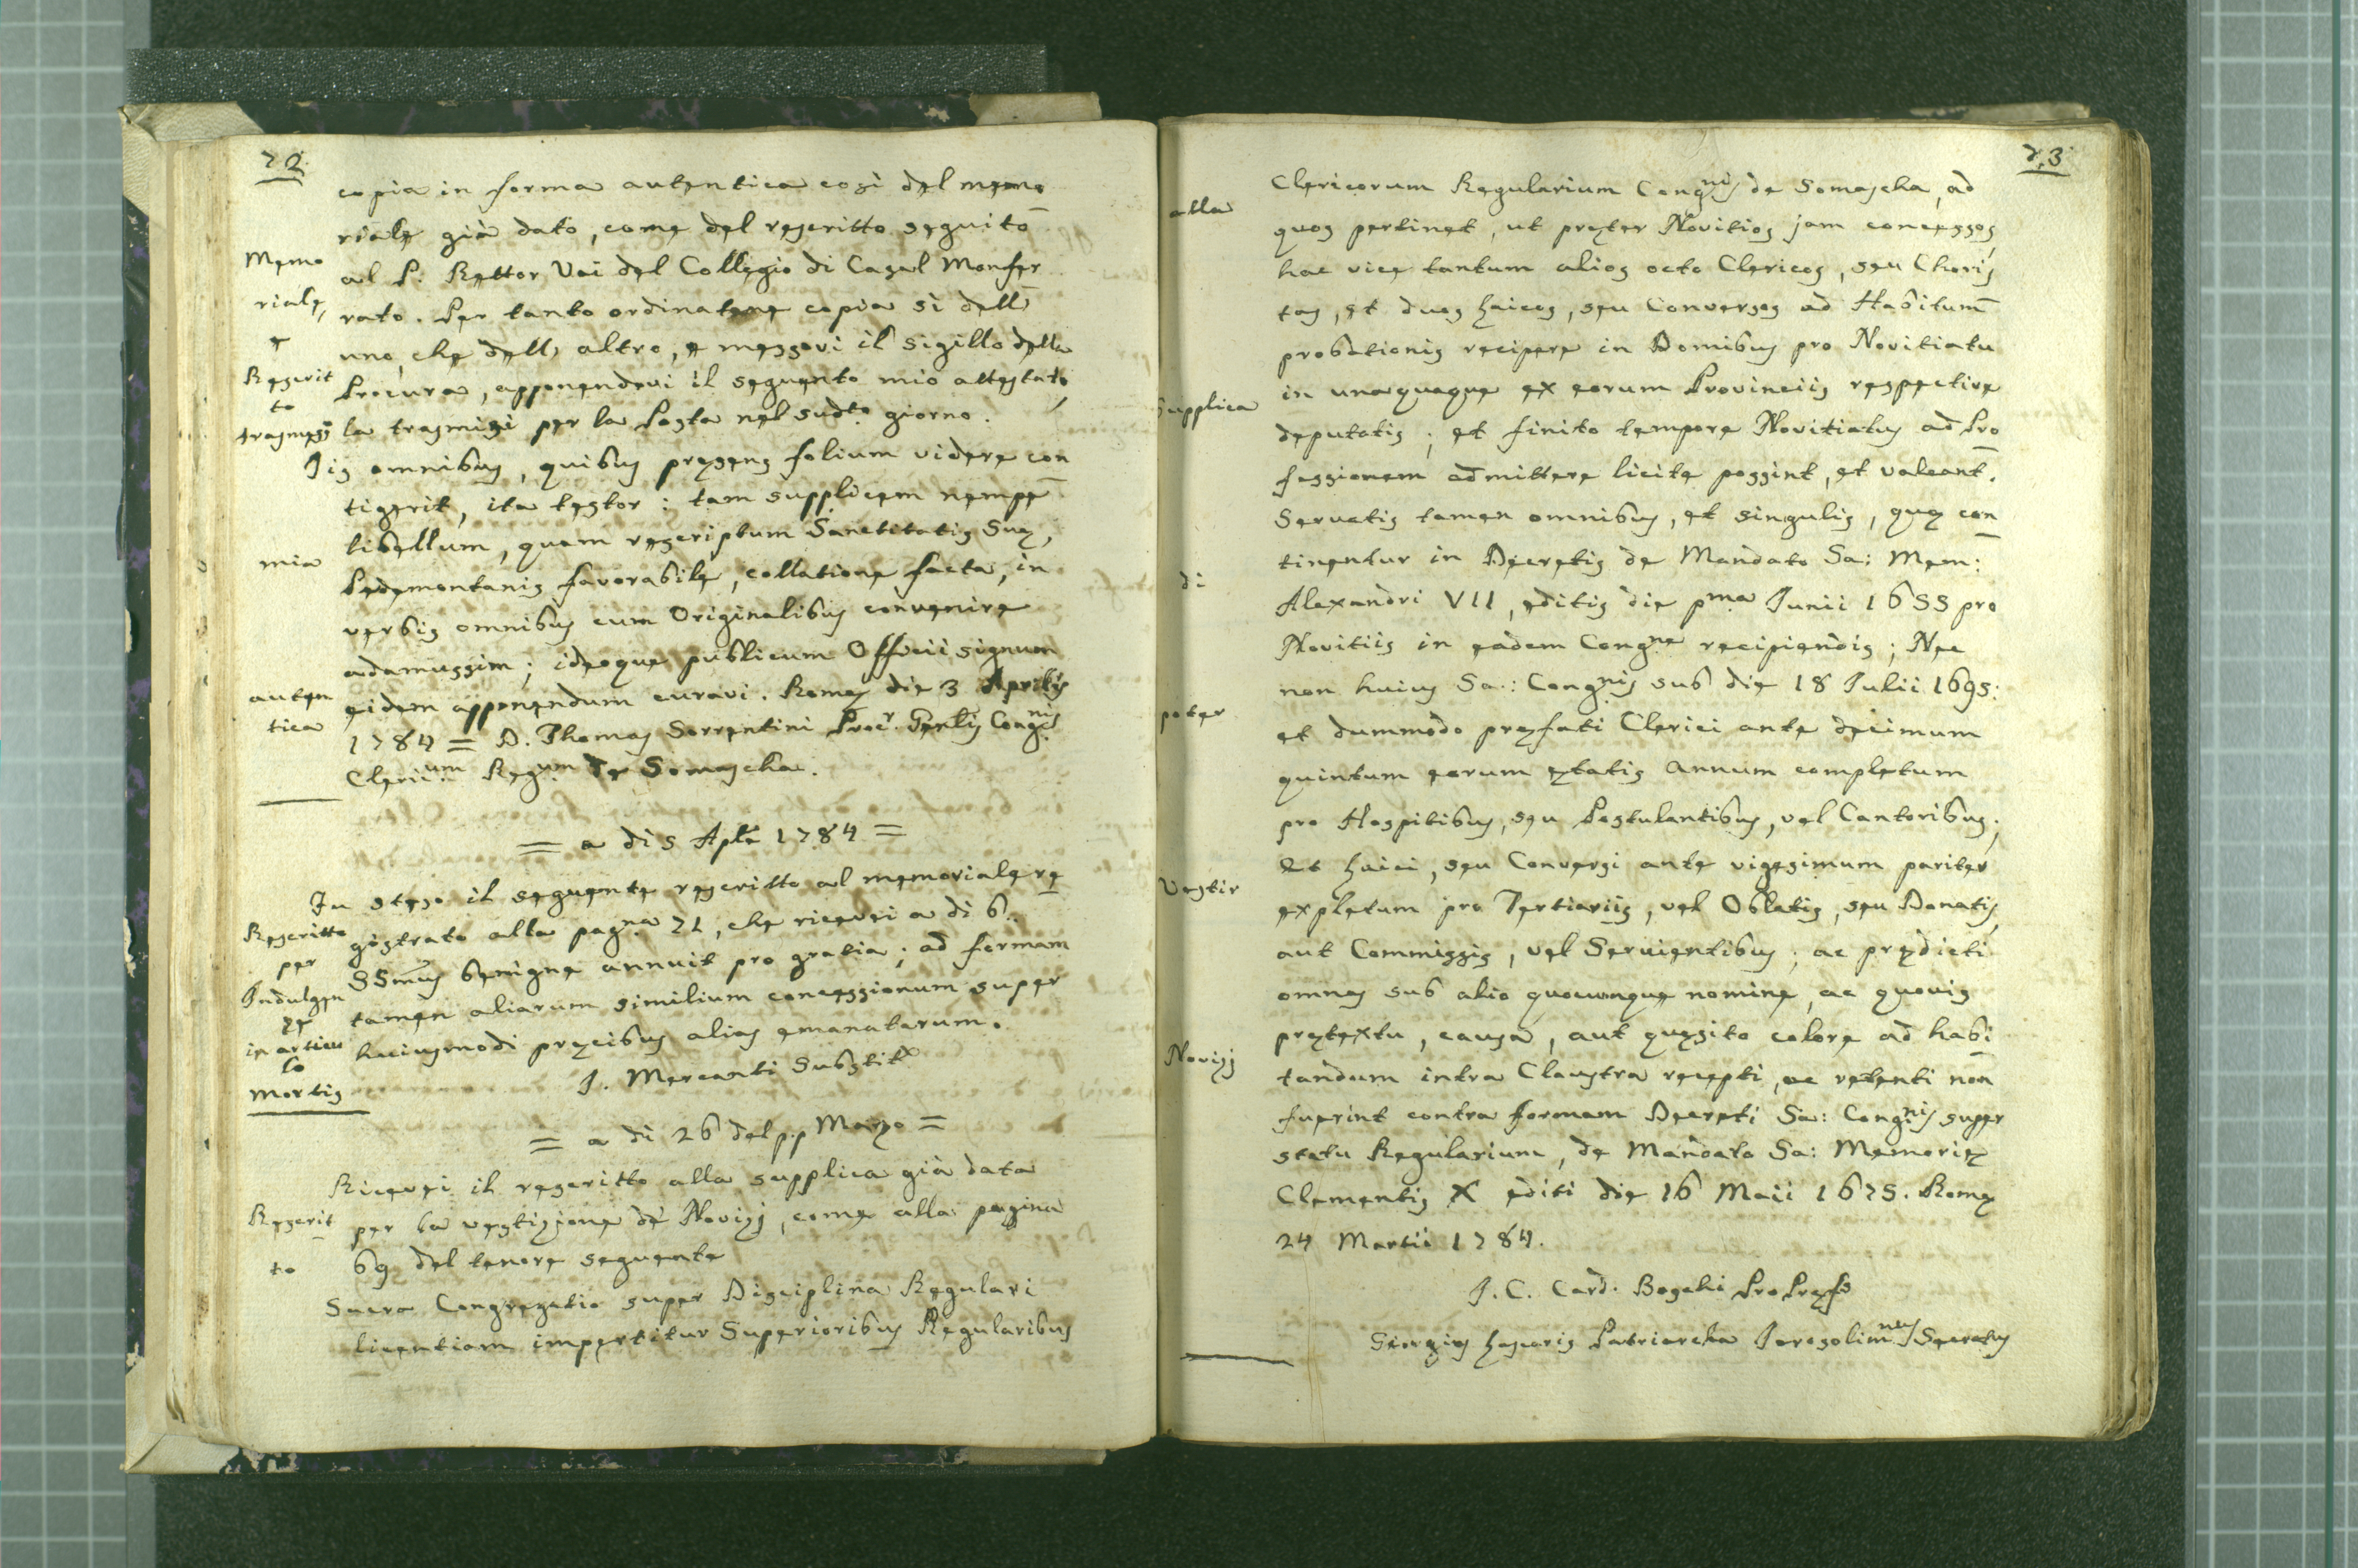 72
copia in forma autentica così del memo
riale già dato, come del rescritto seguito
al P. Rettor Vai del Collegio di Casal Monfer
rato. Per tanto ordinatene copia sì dell'
uno, che dell' altro, e messovi il sigillo della
Procura, apponendovi il seguente mio attestato,
la trasmisi per la Posta nel sudto. giorno.
Memo
riale,
e
Rescrit
to
trasmessi
Iis omnibus, quibus præsens folium videre con
tigerit, ita testor: tam supplicem nempe
libellum, quam rescriptum Sanctitatis Suæ,
Pedemontanis favorabile, collatione facta, in
verbis omnibus cum Originalibus convenire
adamussim; ideoque publicum Officii signum
eidem apponendum curavi. Romæ die 3 Aprilis
1784 = D. Thomas Sorrentini Procr. Genlis Congnis
Clericum Regum de Somascha.
mia
auten
tica
= a di 5 Aple 1784 =
Fu steso il seguente rescritto al memoriale re
gistrato alla pagna 71, che ricevei a di 6..
SSmus benigne annuit pro gratia; ad formam
tamen aliarum similium concessionum super
huiusmodi precibus alias emanatarum.
J. Mercanti Substits
Rescritto
per
Indulgen
ze
in articu
lo
mortis
= a di 26 del p.p Marzo =
Ricevei il rescritto alla supplica già data
per la vestizione de' Novizj, come alla pagina
69 del tenore seguente
Rescrit
to
Sacra Congregatio super Disciplina Regulari
licentiam impertitur Superioribus Regularibus
73
Clericorum Regularium Congnis de Somascha, ad
quos pertinet, ut præter Novitios jam concessos,
hac vice tantum alios octo Clericos, seu Choris
tas, et duos Laicos, seu Conversos ad Habitum
probationis recipere in Domibus pro Novitiatu
in unaquaque ex eorum Provinciis respective
deputatis; et finito tempore Novitiatus ad Pro
fessionem admittere licite possint, et valeant.
Servatis tamen omnibus, et singulis, quæ con
tinentur in Decretis de Mandato Sa: Mem:
Alexandri VII, editis die pma Junii 1655 pro
Novitiis in eadem Congne recipiendis; Nec
non huius Sa.: Congnis sub die 18 Julii 1695:
et dummodo præfati Clerici ante decimum
quintum eorum ætatis annum completum
pro Hospitibus, seu Postulantibus, vel Cantoribus;
et Laici, seu Conversi ante vigesimum pariter
expletum pro Tertiariis, vel Oblatis, seu Donatis,
aut Commissis, vel Servientibus; ac prædicti
omnes sub alio quocunque nomine, ac quovis
prætextu, causa, aut quæsito colore ad habi
tandum intra Claustra recepti, ac retenti non
fuerint contra formam Decreti Sa: Congnis super
statu Regularium, de Mandato Sa: Memoriæ
Clementis X editi die 16 Maii 1675. Romæ
24 Martii 1784.
alla
supplica
di
poter
Vestir
Novizj
J. C. Card. Boschi Pro Præfs
Giorgius Lascaris Patriarcha Jerosolimnus Secretus